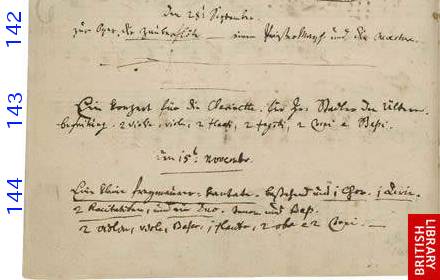 142
den 28t September.
zur Oper. die Zauberflöte — einen Priestermarsch und die Ouverture.
143
Ein Konzert für die Clarinette. für Hr. Stadler den Ältern.
begleitung. 2 violin, viole, 2 flauti, 2 fagotti, 2 Corni e Bassi.
den 15t Novembr.
144
Eine kleine freymaurer-kantate. bestehend aus 1 Chor. 1 Arie.
2 Recitativen, und ein Duo. tenor und Bass.
2 violini, viole, Basso, 1 flauto, 2 oboe e 2 Corni. —
BRITISH
LIBRARY